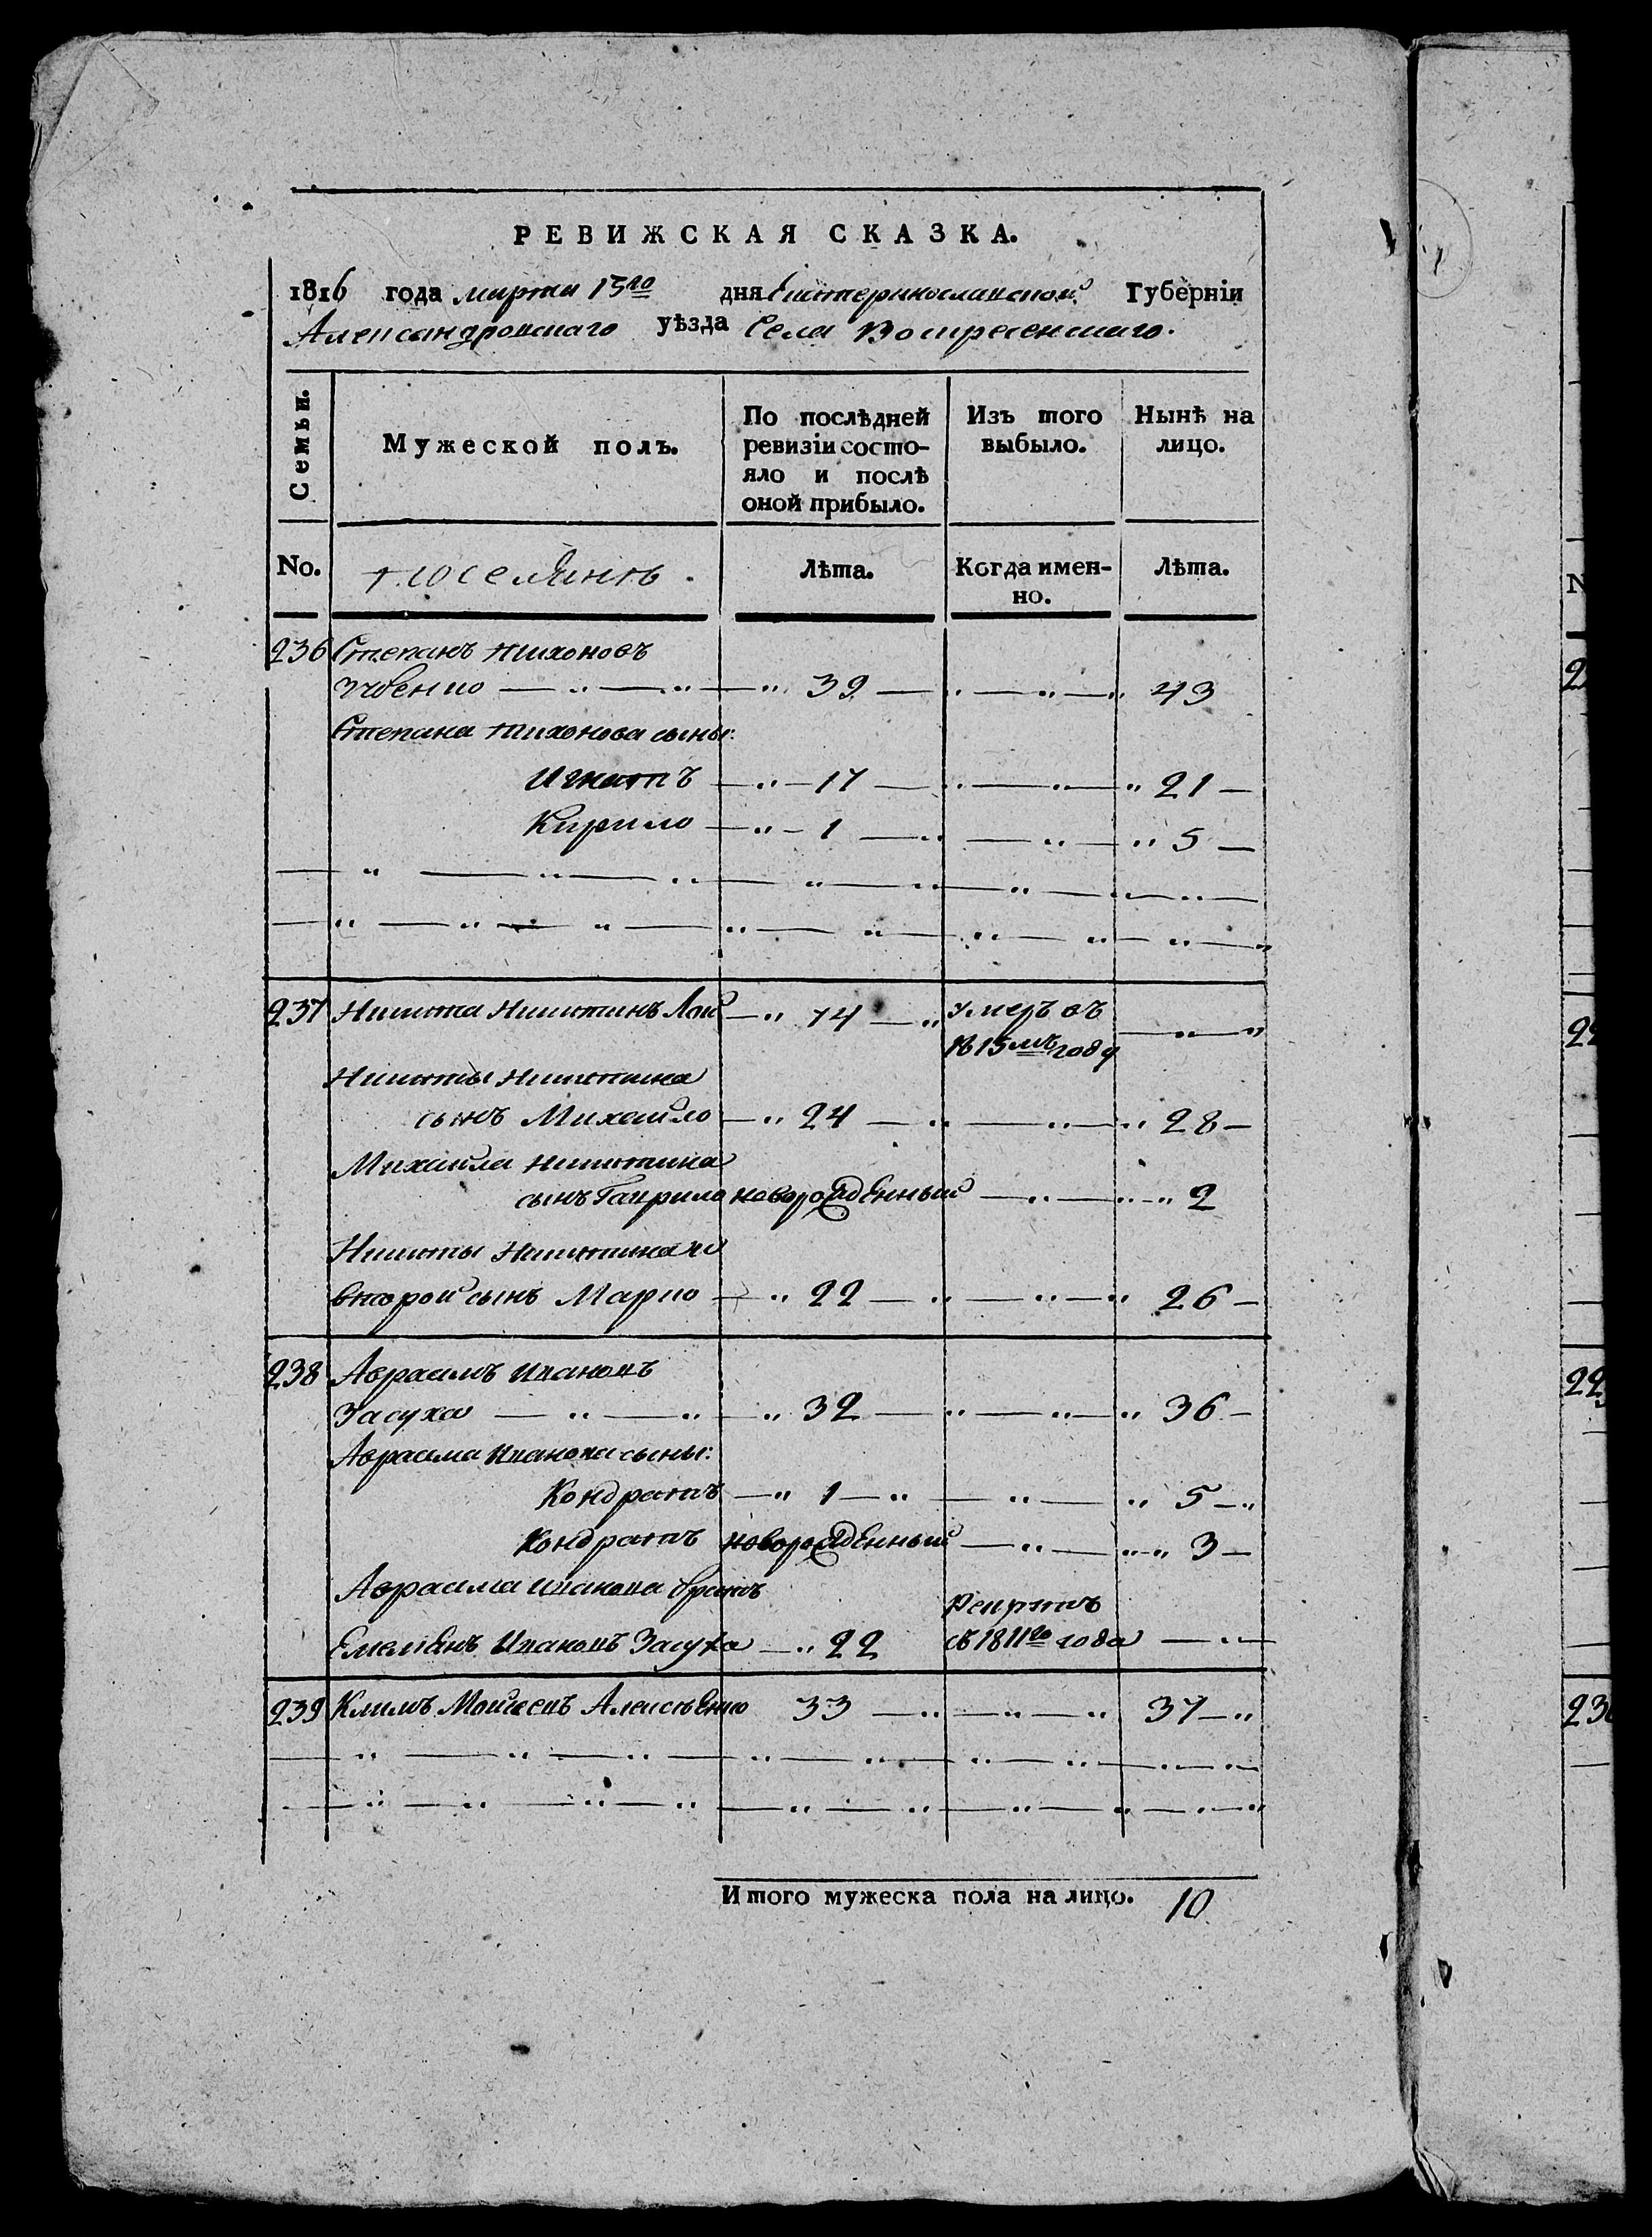 РЕВИЖСКАЯ СКАЗКА.
1816 года марта 15го дня Екатеринославской Губернїи
Александровскаго уѣзда Села Воскресенскаго.
Семьи.
Мужеской полъ.
По послѣдней ревизїи состояло и послѣ оной прибыло.
Изъ того выбыло.
Нынѣ на лицо.
No.
поселянъ.
Лѣта.
Когда именно.
Лѣта.
236 Степанъ Тихоновъ
Зубенко 39 43
Степана Тихонова сыны:
Игнатъ 17 21
Кирило 1 5
237 Никита Никитинъ Лой 74 умеръ въ
1815мъ году
Никиты Никитина
сынъ Михайло 24 28
Михайла Никитина
сынъ Гаврило новорожденный 2
Никиты Никитина же
второй сынъ Марко 22 26
238 Авраамъ Ивановъ
Засуха 32 36
Авраама Иванова сыны:
Кондратъ 1 5
Кондратъ новорожденный 3
Авраама Иванова братъ
Емельянъ Ивановъ Засуха 22 Рекрутъ
съ 1811го года
239 Климъ Моисеевъ Алексѣенко 33 37
Итого мужеска пола на лицо. 10